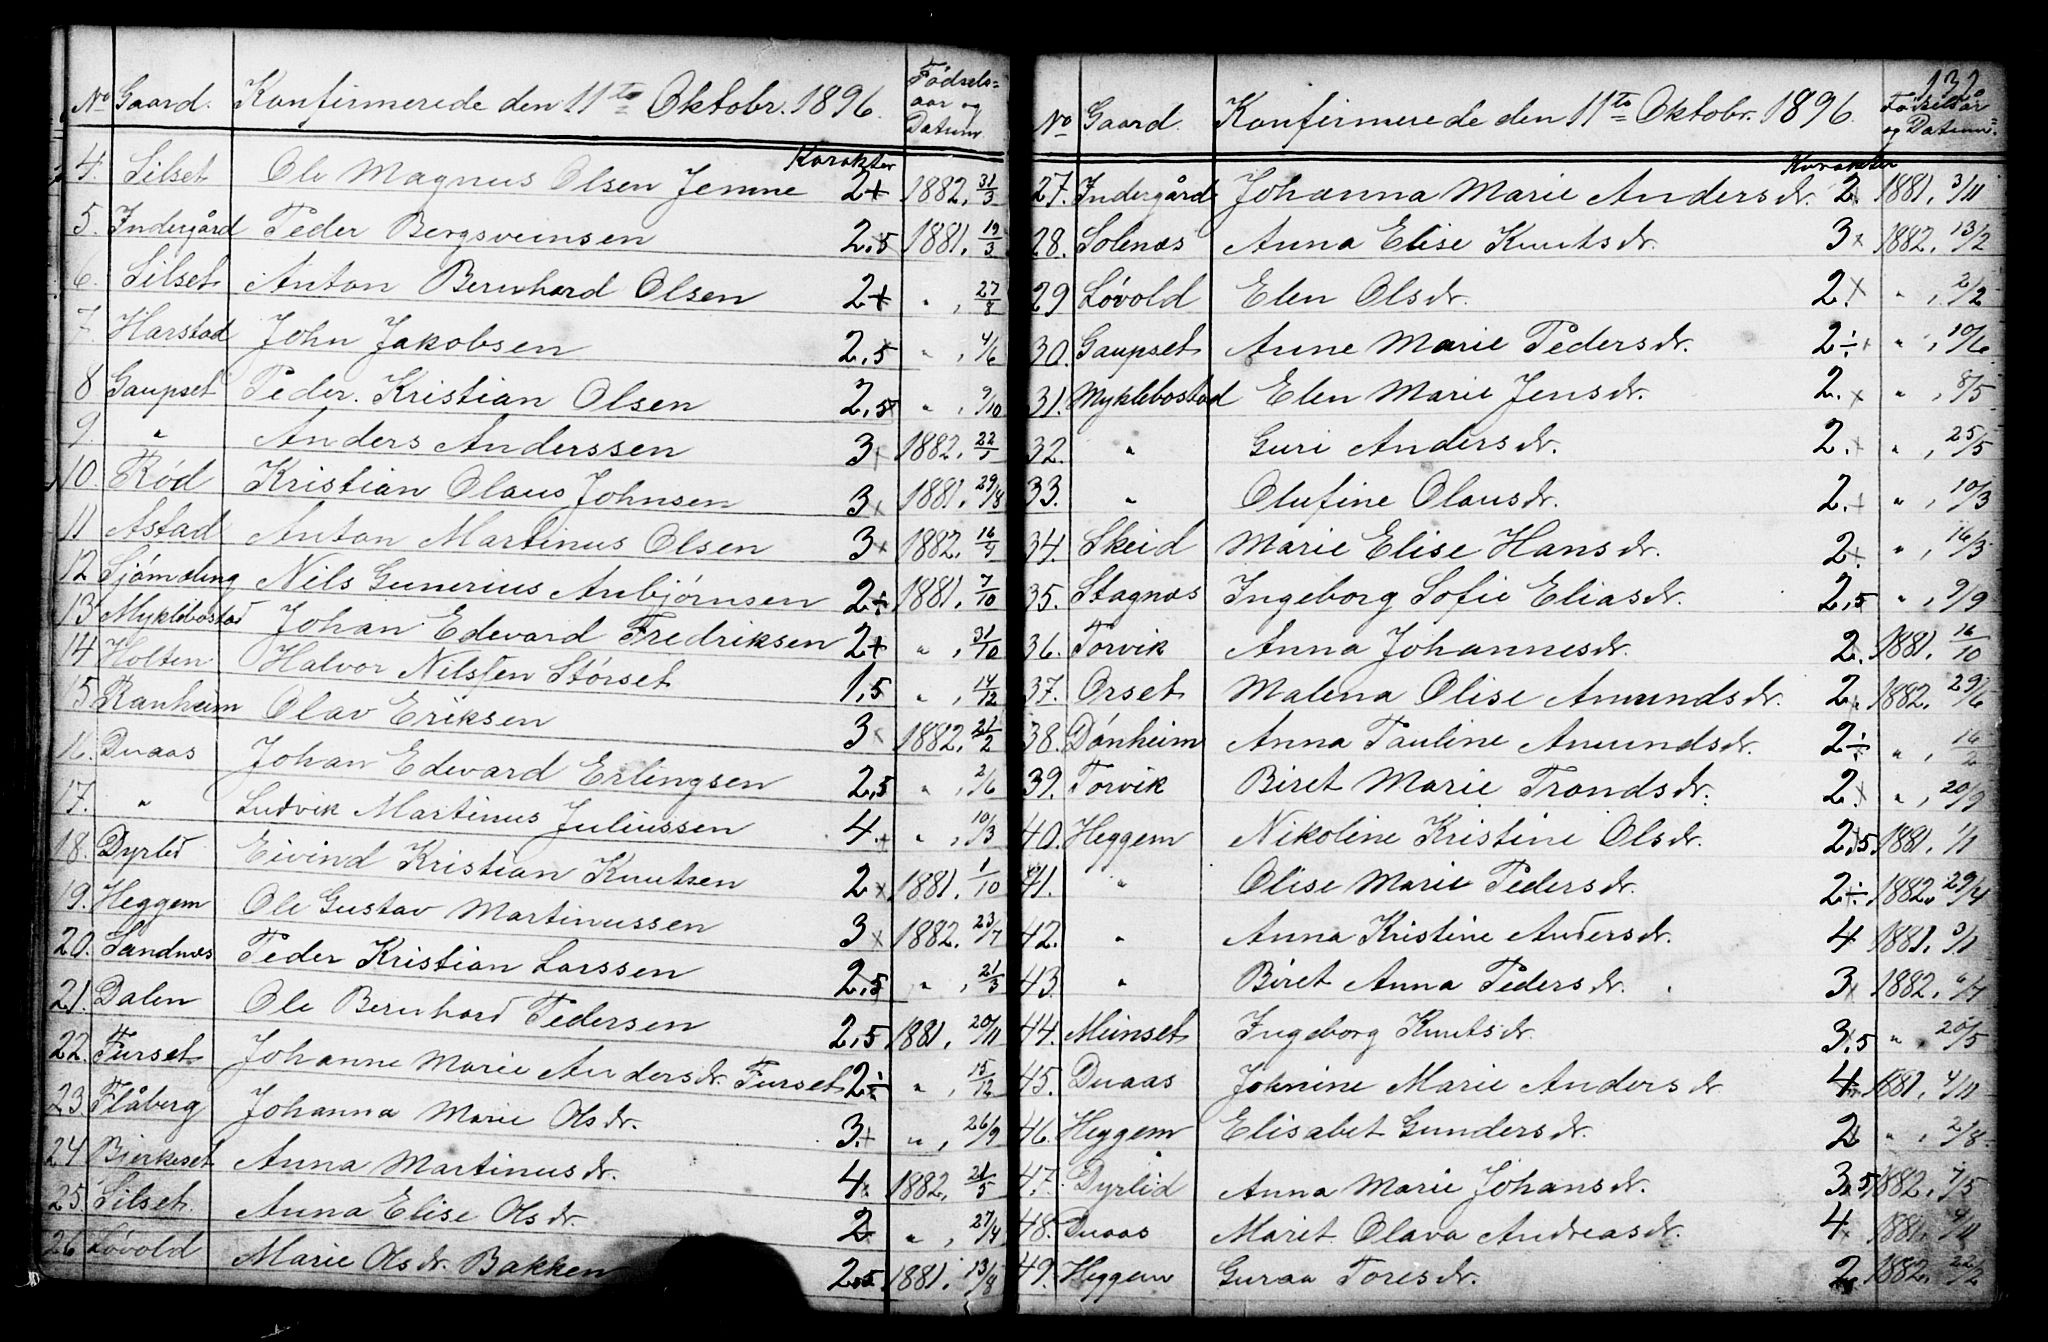 No Gaard. Konfirmerede den 11te Oktobr. 1896. Fødsels=
aar og
Datum
Karakter
4. Silset Ole Magnus Olsen Jemne 2+ 1882. 31/3
5. Indergård Peder Bergsveinsen 2,5 1881. 19/3
6. Silset Anton Bernhard Olsen 2+ " , 27/8
7. Harstad John Jakobsen 2,5 " , 4/6
8 Gaupset Peder Kristian Olsen 2,5 " , 9/10
9. " Anders Anderssen 3 1882. 22/1
10. Rød Kristian Olaus Johnsen 3 1881. 29/8
11 Astad Anton Martinus Olsen 3 1882. 16/4
12 Sjømæling Nils Gunerius Anbjørnsen 2÷ 1881. 7/10
13 Myklebostad Johan Edevard Fredriksen 2+ " , 31/10
14 Holten Halvor Nilssen Størset 1,5 " , 14/12
15 Ranheim Olav Eriksen 3 1882. 21/2
16. Duaas Johan Edevard Erlingsen 2,5 " , 2/6
17. " Ludvik Martinus Juliussen 4 " , 10/3
18. Dyrlid Eivind Kristian Knutsen 2 1881. 1/10
19. Heggem Ole Gustav Martinussen 3 1882. 23/7
20. Sandnes Peder Kristian Larssen 2,5 " , 21/3
21. Dalen Ole Bernhard Pedersen 2,5 1881. 20/11
22. Furset Johanne Marie Andersdr. Furset 2÷ " , 15/12
23 Flåberg Johanna Marie Olsdr. 3. " , 26/9
24 Bjerkeset Anna Martinusdr. 4. 1882. 21/5
25 Silset Anna Elise Olsdr. 2 " , 27/4
26 Løvold Marie Olsdr. Bakken 2,5. 1881. 13/8
132
No Gaard. Konfirmerede den 11te Oktobr. 1896. Fødselsår
og Datum.
Karakter
27. Indergård Johanna Marie Andersdr. 2 1881. 3/11
28. Solenæs Anna Elise Knutsdr. 3 1882. 13/2
29 Løvold Elen Olsdr. 2. " , 2/2
30. Gaupset Anne Marie Pedersdr. 2÷ " , 10/6
31. Myklebostad Elen Marie Jensdr. 2. " , 8/5
32. " Guri Andersdr. 2. " , 25/5
33. " Olufine Olausdr. 2. " , 10/3
34. Skeid Marie Elise Hansdr. 2. " , 16/3
35. Stagnæs Ingeborg Sofie Eliasdr. 2,5 " , 9/9
36. Torvik Anna Johannesdr. 2. 1881. 16/10
37. Orset Malena Olise Amundsdr. 2. 1882. 29/6
38. Dønheim Anna Pauline Amundsdr. 2÷ " , 16/2
39. Torvik Biret Marie Trondsdr. 2. " , 20/9
40. Heggem Nikoline Kristine Olsdr. 2,5. 1881. 1/1
41. " Olise Marie Pedersdr. 2÷ 1882. 29/4
42. " Anna Kristine Andersdr. 4 1881. 3/1
43. " Biret Anna Pedersdr. 3 1882. 6/7
44. Meinset Ingeborg Knutsdr. 3,5 " , 20/5
45. Duaas Johnine Marie Andersdr 4 1881. 4/11
46. Heggem Elisabet Gundersdr. 2 " , 2/8
47. Dyrlid Anna Marie Johansdr. 3,5 1882. 7/5
48. Duaas Marit Olava Andreasdr. 4 1881. 4/11
49. Heggem Guraa Toresdr. 2. 1882. 22/2